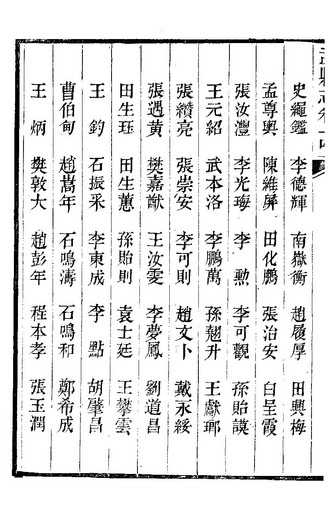 史繩鑑 李德輝 南嶽衡 趙履厚 田興梅
孟尊輿 陳維屏 田化鵬 張治安 白呈霞
張汝灃 李光海 李勳 李可觀 孫貽謨
王元紹 武本洛 李鵬萬 孫翹升 王獻瑯
張纘亮 張崇安 李可則 趙文卜 戴永綏
張遇黃 樊嘉猷 王汝雯 李夢鳳 劉道昌
田生珏 田生蕙 孫貽則 袁士廷 王攀雲
王鈞 石振采 李東成 李點 胡肇昌
曹伯甸 趙嵩年 石鳴濤 石鳴和 鄭希成
王炳 樊敦大 趙彭年 程本孝 張玉潤